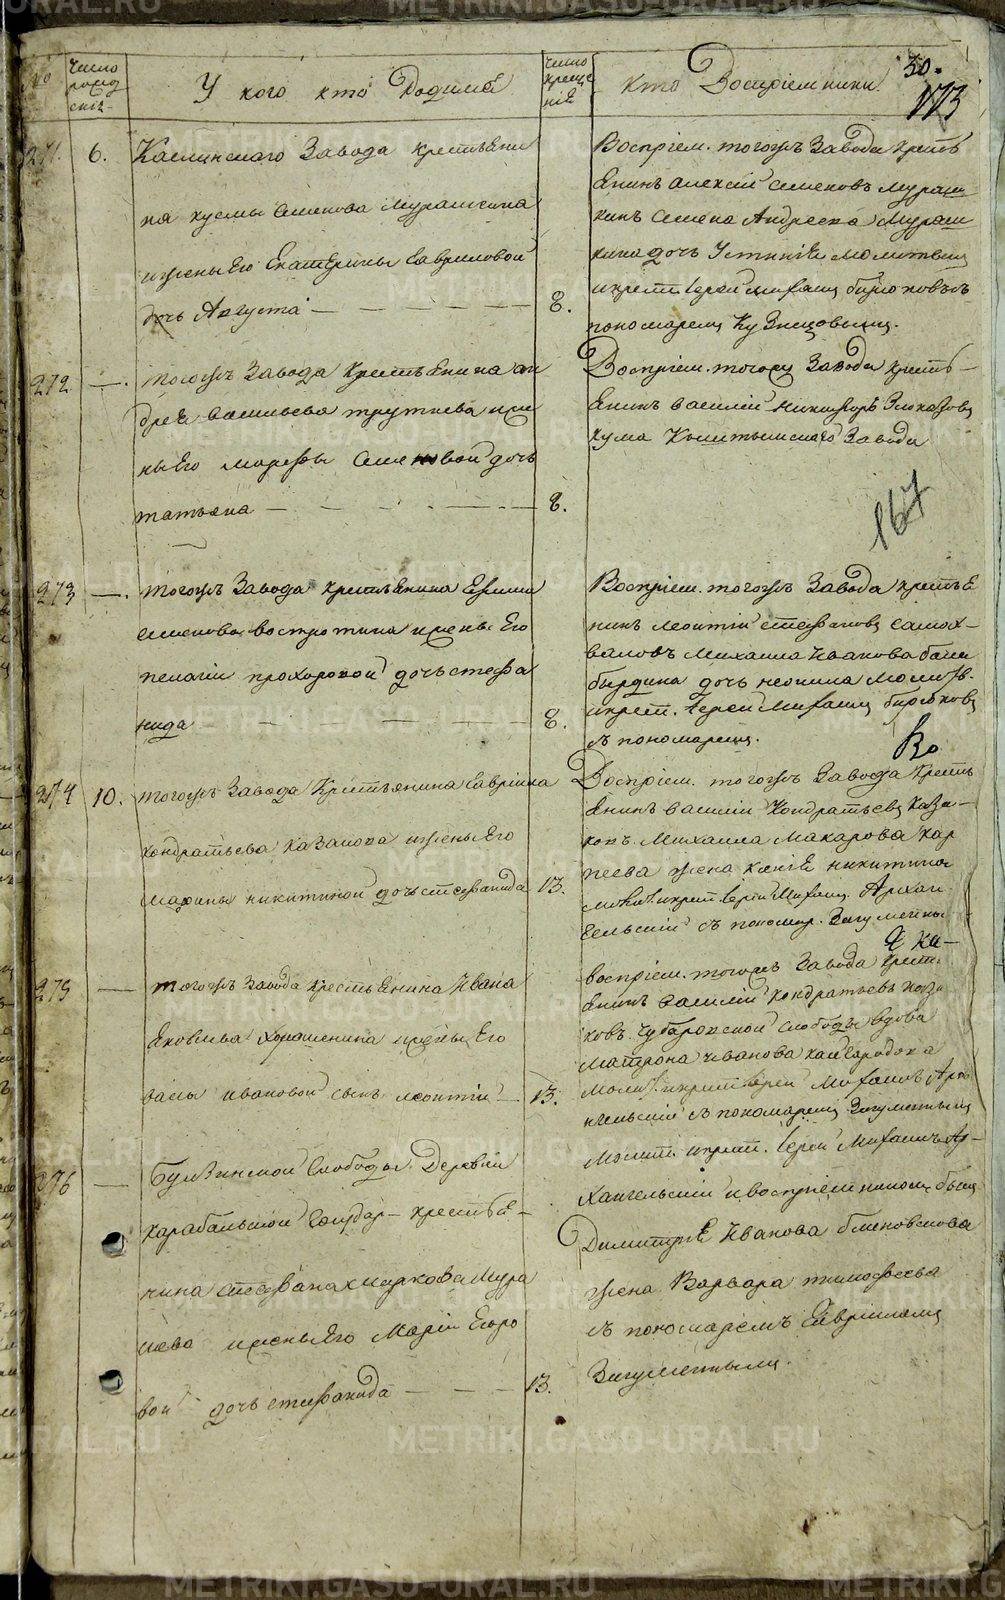 №
число рожденія
У кого кто Родился
число крещенія
кто Воспріемники
30.
173
271.
6.
Каслинскаго Завода крестьяни
на кузмы Семенова Мурашкина
и жены Его Екатерины Гавриловой
дочь Августа
8.
Воспріем. тогожъ Завода крестъ
Янинъ Алексій Семеновъ Мураш
кинъ Семена Андреева Мураш
кина дочь
молитвы
и крест. Іерей Михаилъ Бирюковъ съ
пономаремъ Кузнецовымъ.
272
тогожъ Завода крестьянина ан
дрея васильева трутнева и же
ны Его марфы Семеновой дочь
татьяна
8.
Воспріем. тогожъ Завода кресть
Янинъ василій
кума Кыштымскаго Завода
167
273
тогожъ Завода крестьянина Ефима
Семенова востротина и жены Его
пелагіи прохоровой дочь стефа
нида
8.
Воспріем. тогожъ Завода крестья
нинъ леонтій стефановъ самох
валовъ Михаила Иванова бала
бырдина дочь неонила молитв.
и крест. Іерей Михаилъ бирюковъ
съ пономаремъ.
Во
274
10.
тогожъ Завода Крестьянина Гавріила
кондратьева казакова и жены Его
марины никитиной дочь стефанида
13.
Воспріем. тогожъ Завода кресть
Янинъ василій Кондратьевъ Каза
ковъ Михаила Макарова Кар
пеева жена ксенія никитина
молит. и крест. Іерей Михаилъ Архан
гельскій съ пономар. Загуменны
275
тогожъ Завода крестьянина Ивана
Яковлева Хорошенина и жены Его
вассы ивановой сынъ леонтій
13.
воспріем. тогожъ Завода крест
Янинъ василій кондратьевъ каза
ковъ. Чубаровской слободы вдова
матрона иванова кайгородова
молит. и крест. Іерей Михаилъ Арха
нгельскій съ пономаремъ Загуменнымъ
276
Булзинской Слободы Деревни
карабольской Государ. крестья
нина стефана маркова Мура
шева и жены Его Маріи Егоро
вой дочь стефанида
13.
Молит. и крест. Іерей Михаилъ Ар
хангельскій и воспріемникомъ былъ
Димитрія Иванова
жена Варвара тимофеева
съ пономаремъ Гавріиломъ
Загуменнымъ.
METRIKI.GASO-URAL.RU